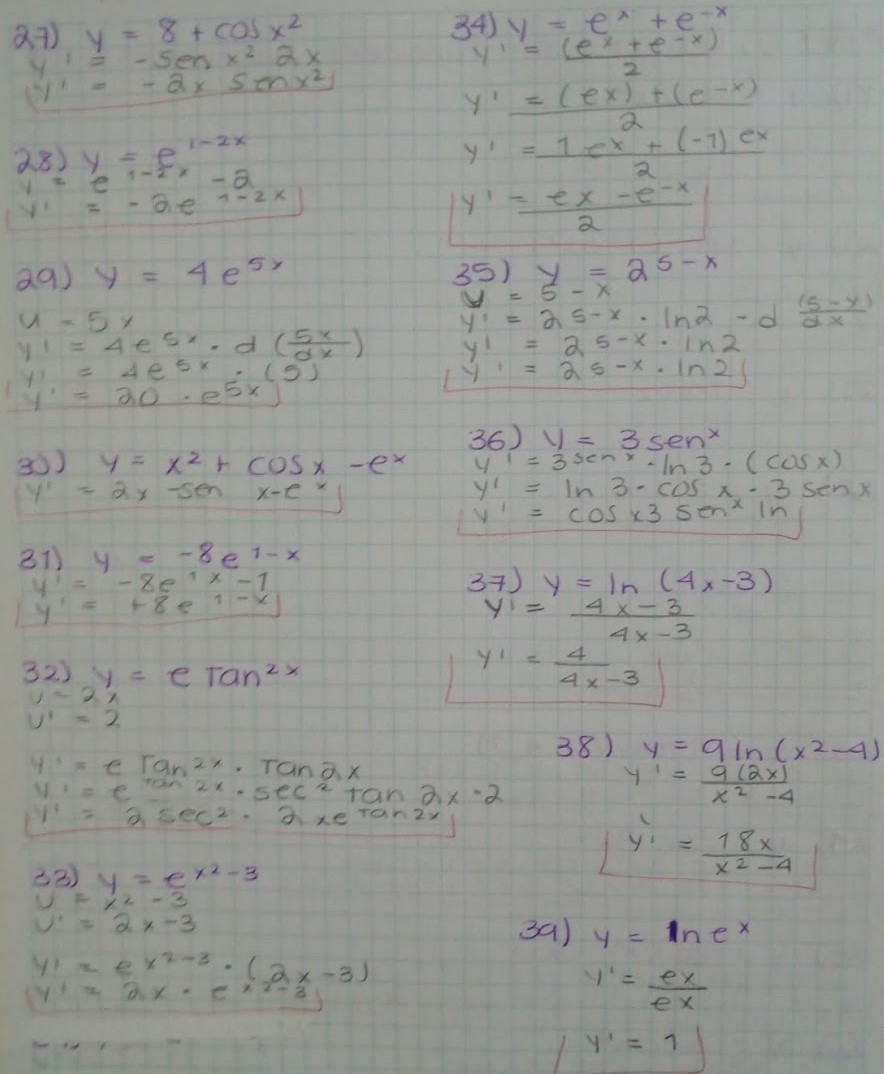 27) y = 8 + cos x²
y' = -sen x² 2x
y' = -2x sen x²
28) y = e^1-2x
y = e^1-2x -2
y' = -2e^1-2x
29) y = 4e^5x
u = 5x
y' = 4e^5x · d (5x/dx)
y' = 4e^5x · (5)
y' = 20 · e^5x
30) y = x² + cos x - e^x
y' = 2x - sen x - e^x
31) y = -8e^1-x
y' = -8e^1-x -1
y' = +8e^1-x
32) y = e Tan^2x
u = 2x
u' = 2
y' = e Tan^2x · Tan 2x
y' = e^Tan 2x · sec² tan 2x · 2
y' = 2 sec² · 2 x e^Tan 2x
33) y = e^x²-3
u = x² - 3
u' = 2x - 3
y' = e^x²-3 · (2x - 3)
y' = 2x · e^x²-3
34) y = e^x + e^-x
y' = (e^x + e^-x)/2
y' = (ex) + (e^-x)/2
y' = 1 ex + (-1) ex/2
y' = ex - e^-x/2
35) y = 2^5-x
y = 5 - x
y' = 2^5-x · ln2 - d (5-x)/dx
y' = 2^5-x · ln2
y' = 2^5-x · ln2
36) y = 3 sen^x
y' = 3^sen x · ln 3 · (cos x)
y' = ln 3 · cos x · 3 sen x
y' = cos x 3 sen^x ln
37) y = ln (4x-3)
y' = 4x - 3/4x - 3
y' = 4/4x - 3
38) y = 9 ln (x² - 4)
y' = 9(2x)/x² - 4
y' = 18x/x² - 4
39) y = ln e^x
y' = ex/ex
y' = 1